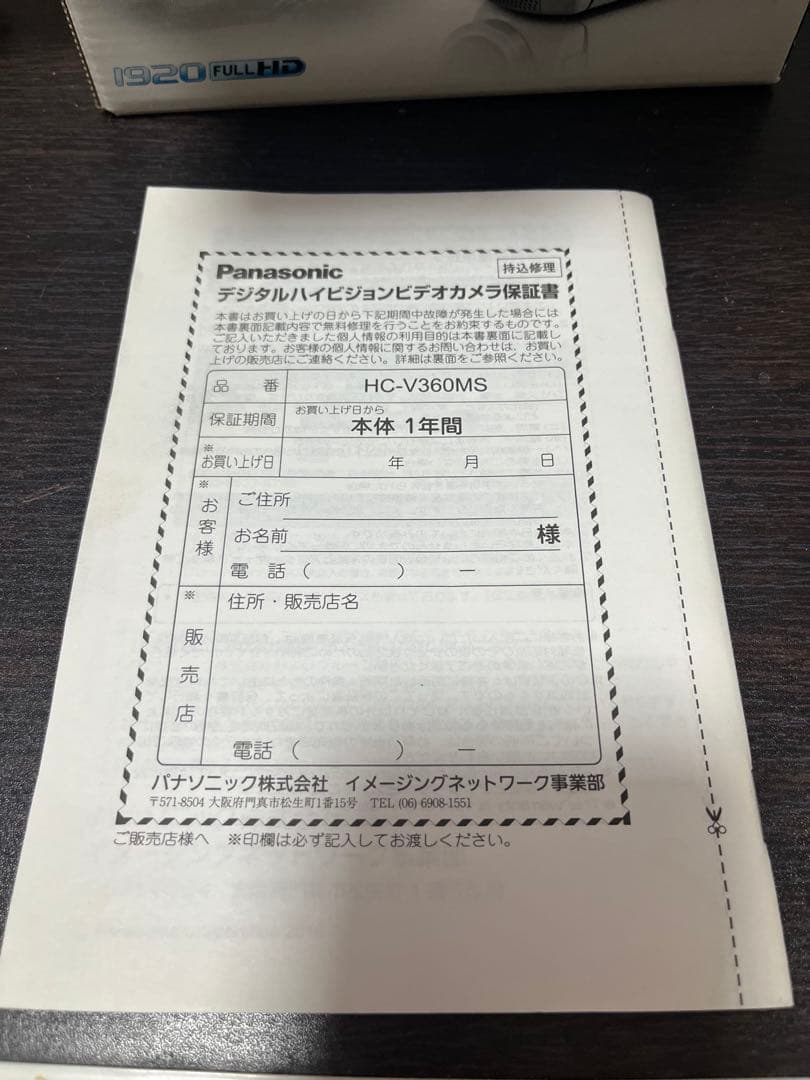 1920 FULL HD
Panasonic
持込修理
デジタルハイビジョンビデオカメラ保証書
本書はお買い上げの日から下記期間中故障が発生した場合には
本書裏面記載内容で無料修理を行うことをお約束するものです。
ご記入いただきました個人情報の利用目的は本書裏面に記載し
ております。お客様の個人情報に関するお問い合わせは、お買い
上げの販売店にご連絡ください。詳細は裏面をご参照ください。
品 番 HC-V360MS
保証期間 お買い上げ日から
本体 1年間
※お買い上げ日 年 月 日
※お客様
ご住所
お名前 様
電 話 ( ) ー
※販売店
住所・販売店名
電話 ( ) ー
パナソニック株式会社 イメージングネットワーク事業部
〒571-8504 大阪府門真市松生町1番15号 TEL (06) 6908-1551
ご販売店様へ ※印欄は必ず記入してお渡しください。